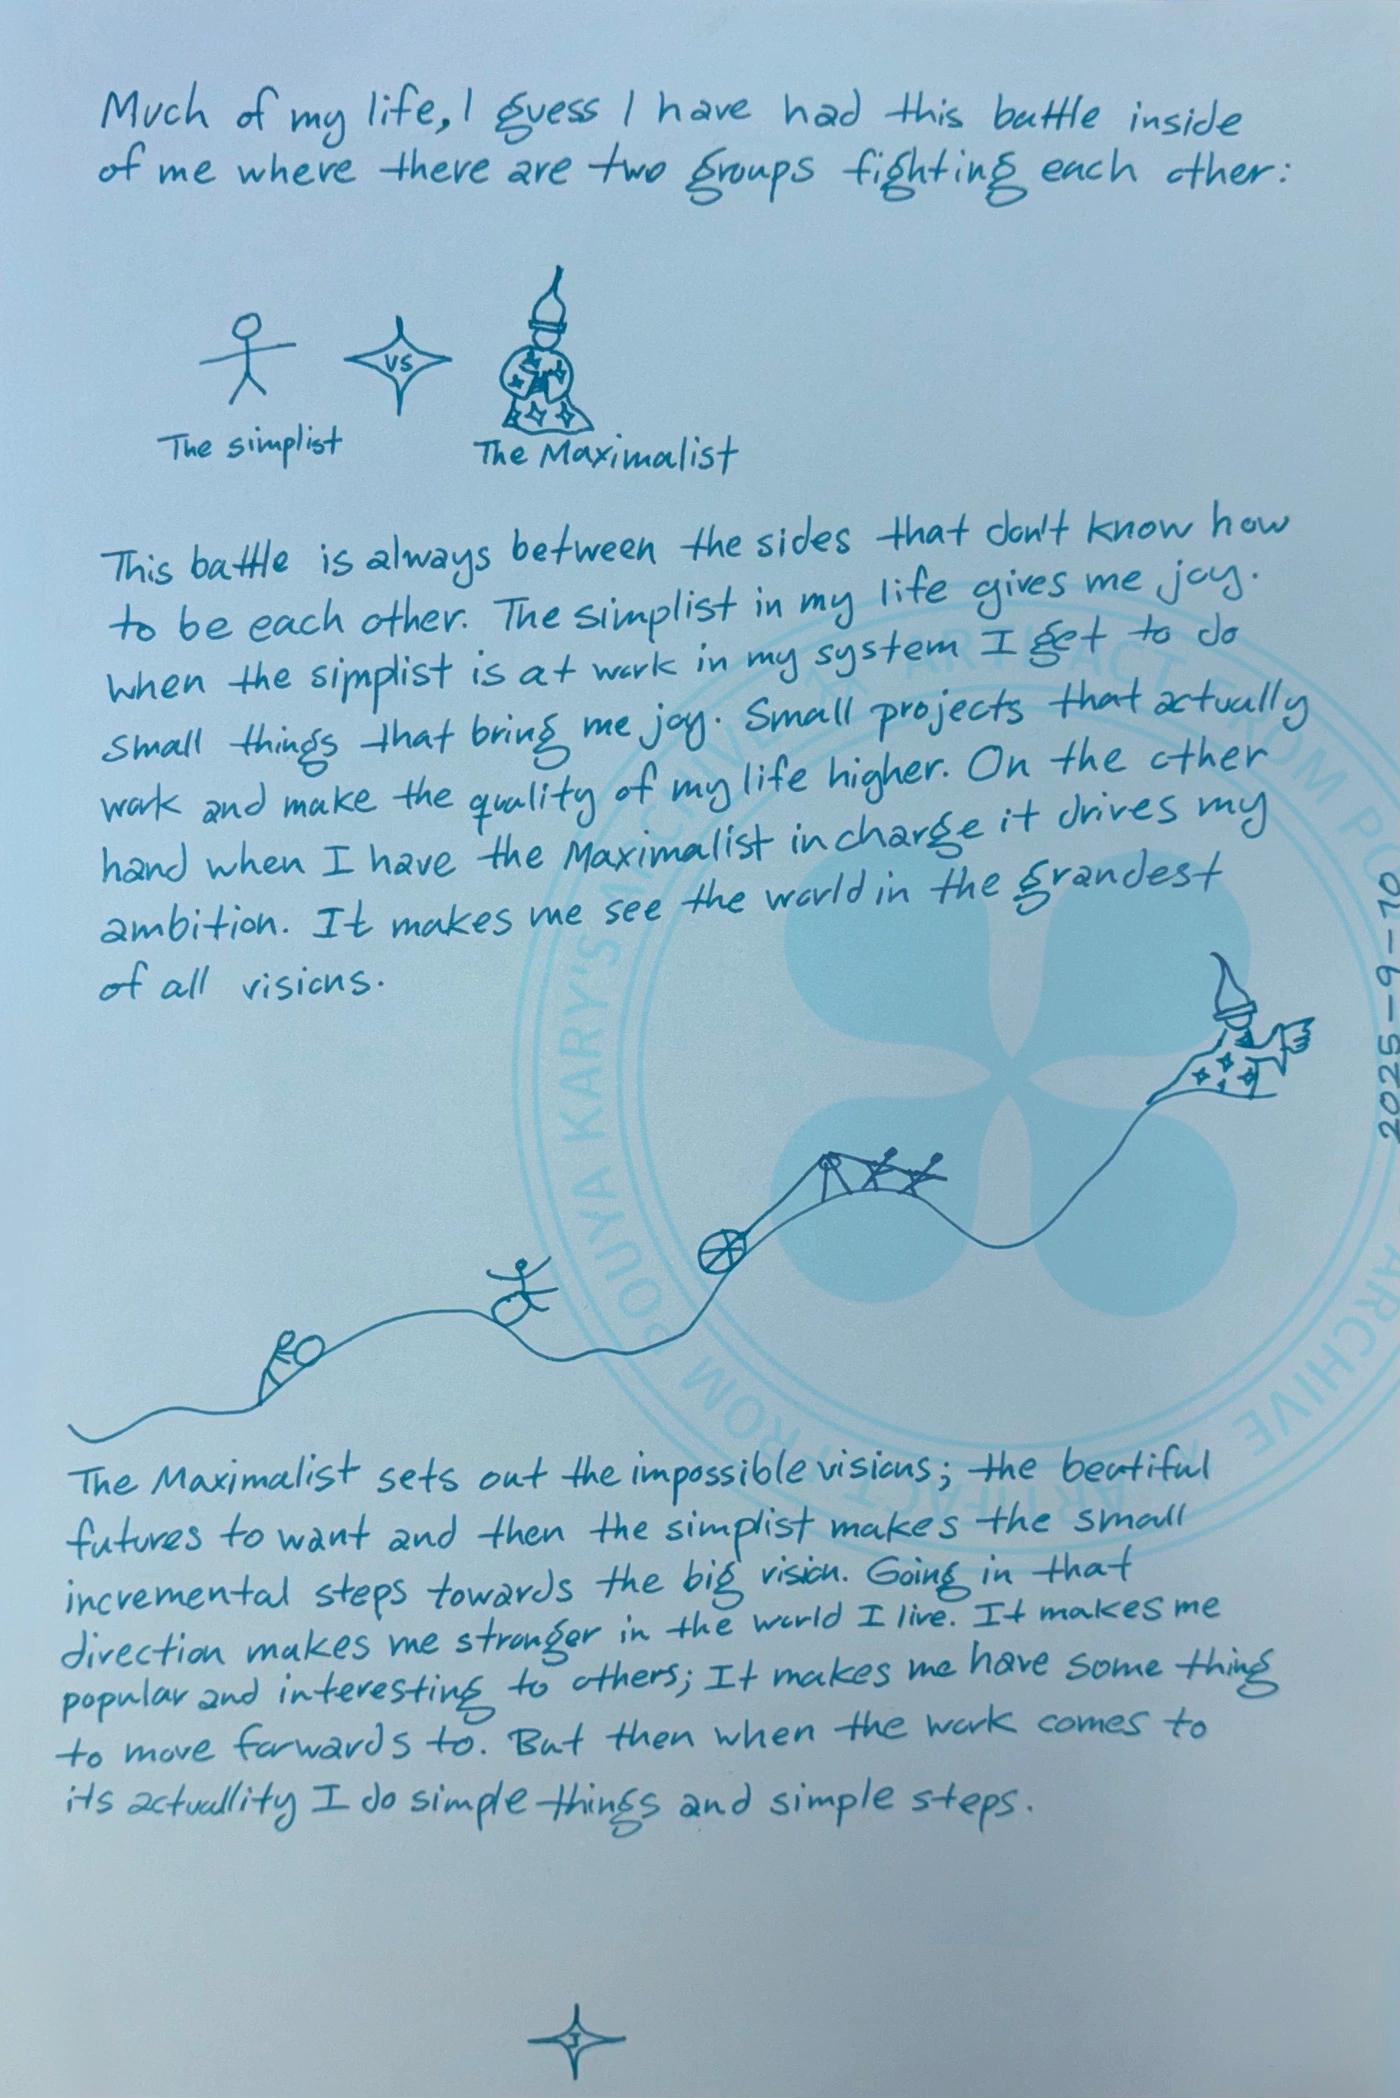 Much of my life, I guess I have had this battle inside
of me where there are two groups fighting each other:
VS
The simplist
The Maximalist
This battle is always between the sides that don't know how
to be each other. The simplist in my life gives me joy.
when the simplist is at work in my system I get to do
small things that bring me joy. Small projects that actually
work and make the quality of my life higher. On the other
hand when I have the Maximalist in charge it drives my
ambition. It makes me see the world in the grandest
of all visions.
2025-9-10
The Maximalist sets out the impossible visions; the beutiful
futures to want and then the simplist makes the small
incremental steps towards the big vision. Going in that
direction makes me stronger in the world I live. It makes me
popular and interesting to others; It makes me have some thing
to move forwards to. But then when the work comes to
its actuallity I do simple things and simple steps.
ARTIFACT FROM POUYA KARY'S ARCHIVE